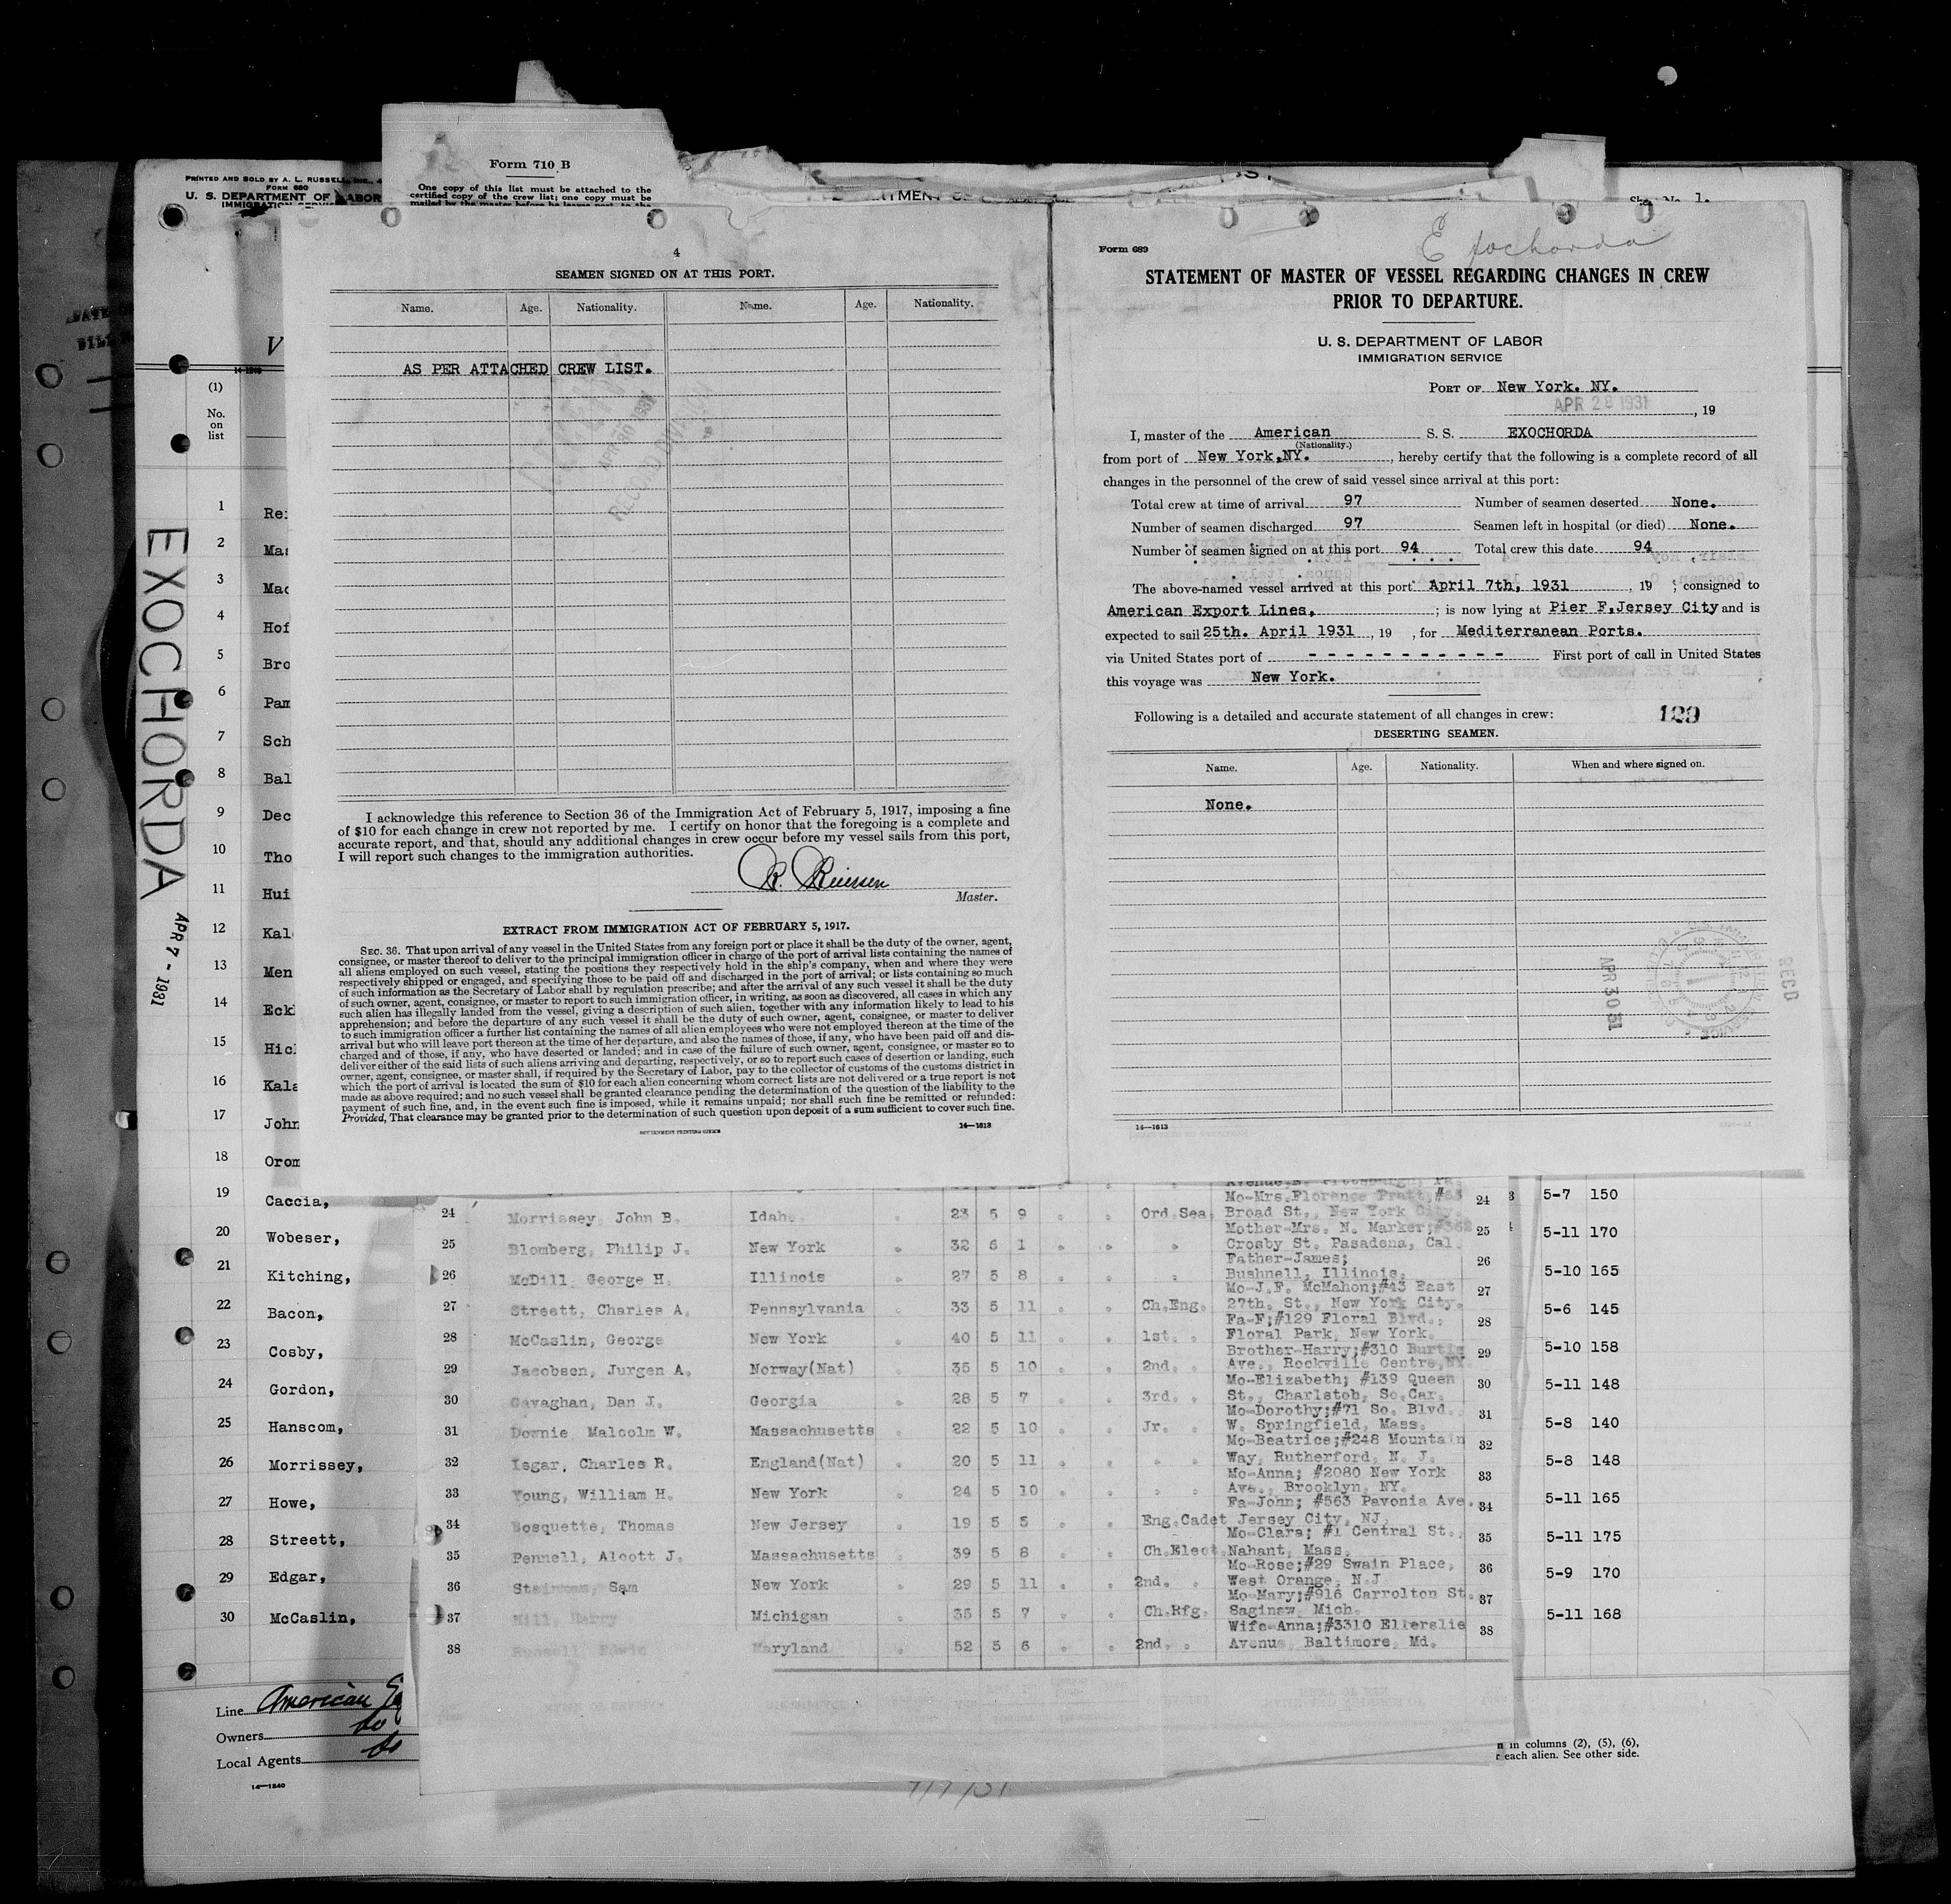 PRINTED AND SOLD BY A. L. RUSSELL, INC.,
FORM 680
U. S. DEPARTMENT OF LABOR
IMMIGRATION SERVICE
Form 710 B
One copy of this list must be attached to the
certified copy of the crew list; one copy must be
mailed by the master before he leaves port, to the
(1)
No.
on
list
EXOCHORDA
APR 7 - 1931
1 Rei
2 Mas
3 Mac
4 Hof
5 Bro
6 Pam
7 Sch
8 Bal
9 Dec
10 Tho
11 Hui
12 Kal
13 Men
14 Eck
15 Hic
16 Kala
17 John
18 Orom
19 Caccia,
20 Wobeser,
21 Kitching,
22 Bacon,
23 Cosby,
24 Gordon,
25 Hanscom,
26 Morrissey,
27 Howe,
28 Streett,
29 Edgar,
30 McCaslin,
Line American
Owners do
Local Agents do
14—1240
4
SEAMEN SIGNED ON AT THIS PORT.
Name. Age. Nationality. Name. Age. Nationality.
AS PER ATTACHED CREW LIST.
APR 30 1931
RECORD DIVISION
I acknowledge this reference to Section 36 of the Immigration Act of February 5, 1917, imposing a fine
of $10 for each change in crew not reported by me. I certify on honor that the foregoing is a complete and
accurate report, and that, should any additional changes in crew occur before my vessel sails from this port,
I will report such changes to the immigration authorities.
Master.
EXTRACT FROM IMMIGRATION ACT OF FEBRUARY 5, 1917.
SEC. 36. That upon arrival of any vessel in the United States from any foreign port or place it shall be the duty of the owner, agent,
consignee, or master thereof to deliver to the principal immigration officer in charge of the port of arrival lists containing the names of
all aliens employed on such vessel, stating the positions they respectively hold in the ship's company, when and where they were
respectively shipped or engaged, and specifying those to be paid off and discharged in the port of arrival; or lists containing so much
of such information as the Secretary of Labor shall by regulation prescribe; and after the arrival of any such vessel it shall be the duty
of such owner, agent, consignee, or master to report to such immigration officer, in writing, as soon as discovered, all cases in which any
such alien has illegally landed from the vessel, giving a description of such alien, together with any information likely to lead to his
apprehension; and before the departure of any such vessel it shall be the duty of such owner, agent, consignee, or master to deliver
to such immigration officer a further list containing the names of all alien employees who were not employed thereon at the time of the
arrival but who will leave port thereon at the time of her departure, and also the names of those, if any, who have been paid off and dis-
charged and of those, if any, who have deserted or landed; and in case of the failure of such owner, agent, consignee, or master so to
deliver either of the said lists of such aliens arriving and departing, respectively, or so to report such cases of desertion or landing, such
owner, agent, consignee, or master shall, if required by the Secretary of Labor, pay to the collector of customs of the customs district in
which the port of arrival is located the sum of $10 for each alien concerning whom correct lists are not delivered or a true report is not
made as above required; and no such vessel shall be granted clearance pending the determination of the question of the liability to the
payment of such fine, and, in the event such fine is imposed, while it remains unpaid; nor shall such fine be remitted or refunded:
Provided, That clearance may be granted prior to the determination of such question upon deposit of a sum sufficient to cover such fine.
GOVERNMENT PRINTING OFFICE
14—1613
Form 689
Exochorda
STATEMENT OF MASTER OF VESSEL REGARDING CHANGES IN CREW
PRIOR TO DEPARTURE.
U. S. DEPARTMENT OF LABOR
IMMIGRATION SERVICE
PORT OF New York. NY.
APR 28 1931, 19
I, master of the American S. S. EXOCHORDA
(Nationality.)
from port of New York,NY., hereby certify that the following is a complete record of all
changes in the personnel of the crew of said vessel since arrival at this port:
Total crew at time of arrival 97 Number of seamen deserted None.
Number of seamen discharged 97 Seamen left in hospital (or died) None.
Number of seamen signed on at this port 94 Total crew this date 94
The above-named vessel arrived at this port April 7th, 1931, 19 ; consigned to
American Export Lines, ; is now lying at Pier F,Jersey City and is
expected to sail 25th. April 1931, 19 , for Mediterranean Ports.
via United States port of - - - - - - - - - - - First port of call in United States
this voyage was New York.
Following is a detailed and accurate statement of all changes in crew: 129
DESERTING SEAMEN.
Name. Age. Nationality. When and where signed on.
None.
APR 30 31
RECD
14—1613
Mo-Mrs.Florence Pratt,#63
24 Morrissey, John B. Idaho. 23 5 9 Ord.Sea. Broad St., New York City. 24
Mother-Mrs. N. Marker;#362
25 Blomberg, Philip J. New York 32 6 1 Crosby St. Pasadena, Cal. 25
Father-James;
26 McDill, George H. Illinois 27 5 8 Bushnell, Illinois. 26
Mo-J.F. McMahon;#43 East
27 Streett, Charles A. Pennsylvania 33 5 11 Ch.Eng. 27th. St., New York City. 27
Fa-F;#129 Floral Blvd.,
28 McCaslin, George New York 40 5 11 1st. Floral Park, New York. 28
Brother-Harry;#310 Burtis
29 Jacobsen, Jurgen A. Norway(Nat) 35 5 10 2nd. Ave., Rockville Centre,NY. 29
Mo-Elizabeth; #139 Queen
30 Gavaghan, Dan J. Georgia 28 5 7 3rd. St., Charlstob, So.Car. 30
Mo-Dorothy;#71 So. Blvd.
31 Downie, Malcolm W. Massachusetts 22 5 10 Jr. W. Springfield, Mass. 31
Mo-Beatrice;#248 Mountain
32 Isgar, Charles R. England(Nat) 20 5 11 Way, Rutherford, N. J. 32
Mo-Anna; #2080 New York
33 Young, William H. New York 24 5 10 Ave., Brooklyn, NY. 33
Fa-John; #563 Pavonia Ave.
34 Bosquette, Thomas New Jersey 19 5 5 Eng.Cadet Jersey City, NJ. 34
Mo-Clara; #1 Central St.,
35 Pennell, Alcott J. Massachusetts 39 5 8 Ch.Elect. Nahant, Mass. 35
Mo-Rose;#29 Swain Place,
36 Sam New York 29 5 11 2nd. West Orange, N.J. 36
Mo-Mary;#916 Carrolton St.
37 Hill, Harry Michigan 35 5 7 Ch.Rfg. Saginaw, Mich. 37
Wife-Anna;#3310 Ellerslie
38 Russell, Edwin Maryland 52 5 6 2nd. Avenue, Baltimore, Md. 38
5-7 150
5-11 170
5-10 165
5-6 145
5-10 158
5-11 148
5-8 140
5-8 148
5-11 165
5-11 175
5-9 170
5-11 168
in columns (2), (5), (6),
each alien. See other side.